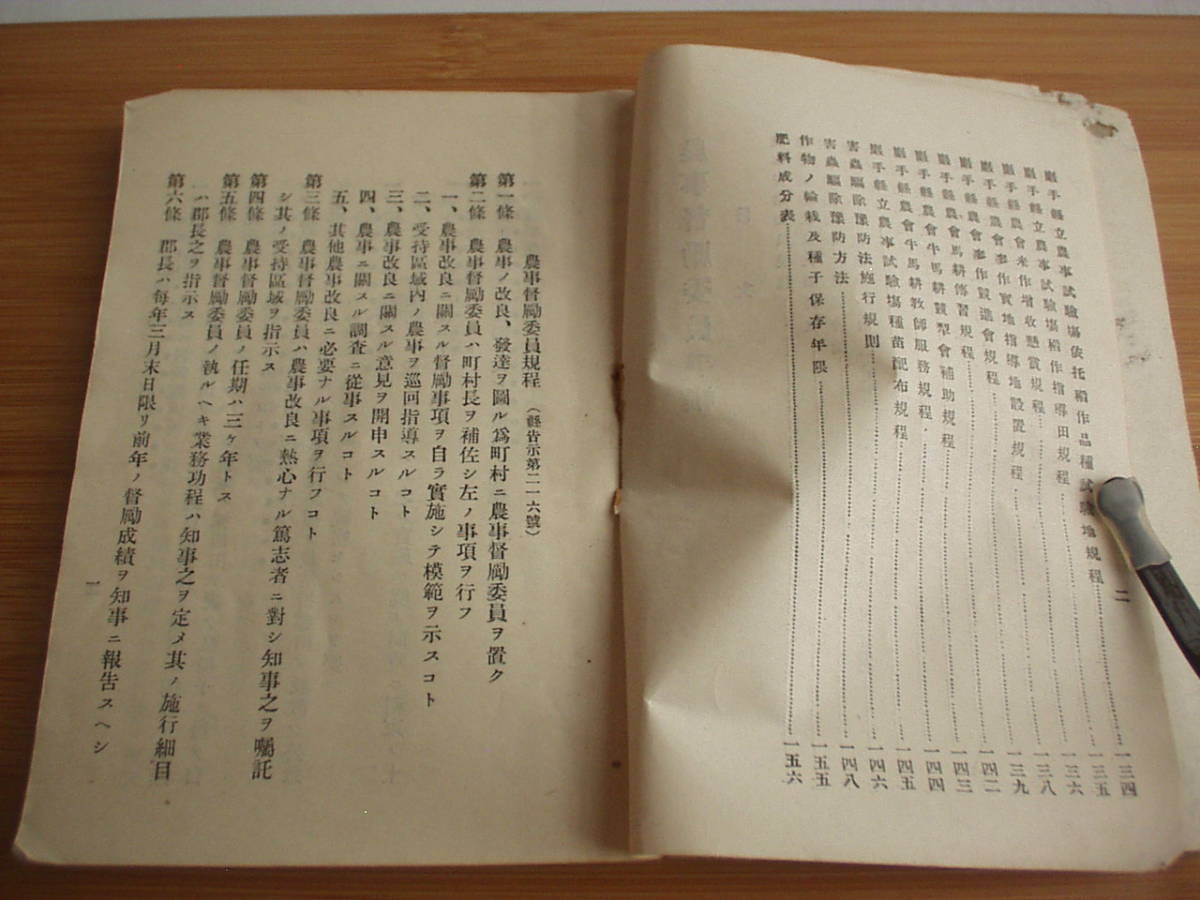 巖手縣立農事試驗場依托稻作品種試驗地規程……一三四
巖手縣立農事試驗場稻作指導田規程……一三五
巖手縣農會米作增收懸賞規程……一三六
巖手縣農會麥作實地指導地設置規程……一三八
巖手縣農會麥作競進會規程……一三九
巖手縣農會馬耕傳習規程……一四二
巖手縣農會牛馬耕競犂會補助規程……一四三
巖手縣農會牛馬耕教師服務規程……一四四
巖手縣立農事試驗場種苗配布規程……一四五
害蟲驅除豫防法施行規則……一四六
害蟲驅除豫防方法……一四八
作物ノ輪栽及種子保存年限……一五五
肥料成分表……一五六
二
農事督勵委員規程 (縣告示第二一六號)
第一條 農事ノ改良、發達ヲ圖ル爲町村ニ農事督勵委員ヲ置ク
第二條 農事督勵委員ハ町村長ヲ補佐シ左ノ事項ヲ行フ
一、農事改良ニ關スル督勵事項ヲ自ラ實施シテ模範ヲ示スコト
二、受持區域內ノ農事ヲ巡回指導スルコト
三、農事改良ニ關スル意見ヲ開申スルコト
四、農事ニ關スル調査ニ從事スルコト
五、其他農事改良ニ必要ナル事項ヲ行フコト
第三條 農事督勵委員ハ農事改良ニ熱心ナル篤志者ニ對シ知事之ヲ囑託
シ其ノ受持區域ヲ指示ス
第四條 農事督勵委員ノ任期ハ三ケ年トス
第五條 農事督勵委員ノ執ルヘキ業務功程ハ知事之ヲ定メ其ノ施行細目
ハ郡長之ヲ指示ス
第六條 郡長ハ每年三月末日限リ前年ノ督勵成績ヲ知事ニ報告スヘシ
一